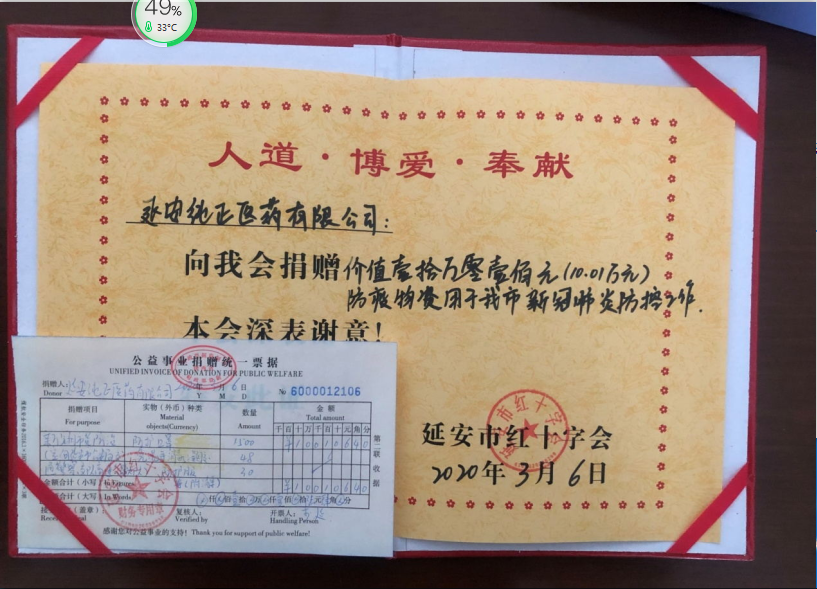 49%
33°C
人道·博爱·奉献
延安纯正医药有限公司:
向我会捐赠价值壹拾万零壹佰元(10.01万元)
防疫物资用于我市新冠肺炎防控工作.
本会深表谢意!
公益事业捐赠统一票据
UNIFIED INVOICE OF DONATION FOR PUBLIC WELFARE
捐赠人: 延安纯正医药有限公司 月6日
Donor Y M D
№ 6000012106
捐赠项目 实物(外币)种类 数量 金额
For purpose Material objects(Currency) Amount Total amount
千百十万千百十元角分
1500 ¥10010640
48
30
金额合计(小写) In Figures ¥10010640
金额合计(大写) In Words
第二联 收据
复核人: 开票人:
Verified by Handling Person
感谢您对公益事业的支持! Thank you for support of public welfare!
财务专用章
延安市红十字会
2020年3月6日